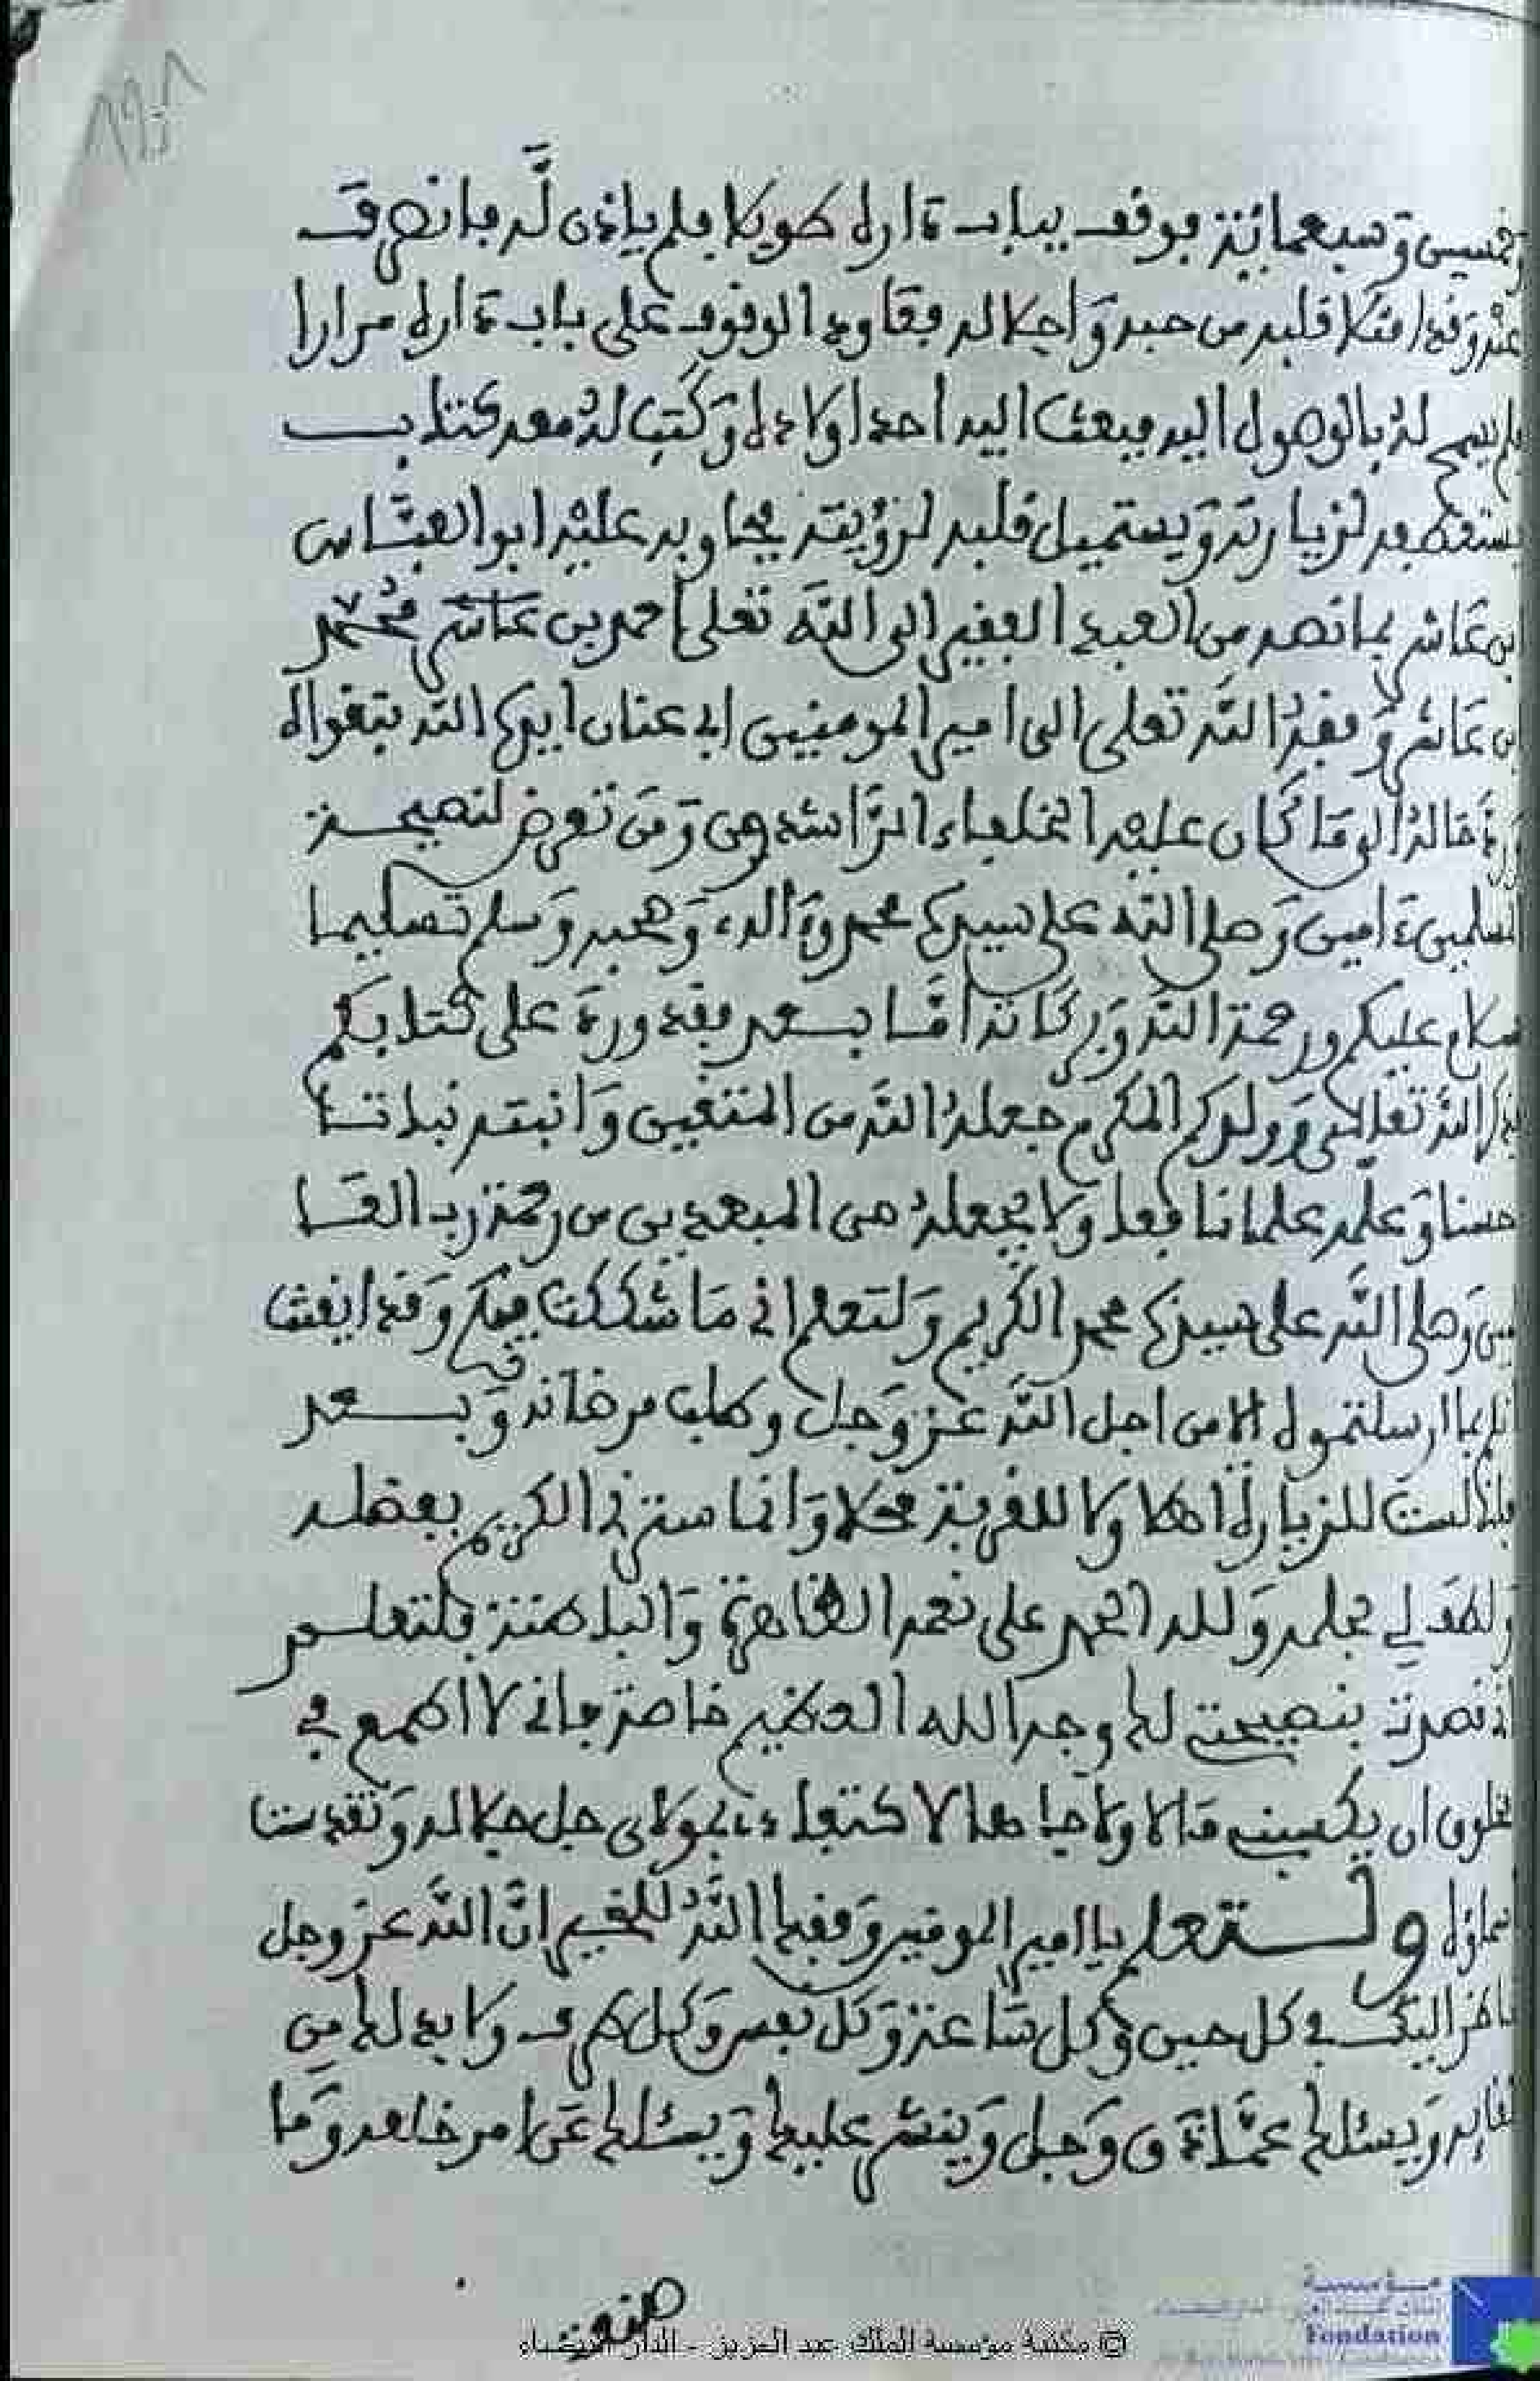 وخمسين وسبعمائة فوقف بباب داره طويلا فلم ياذن له فانصرف
عنه وقد امتلا قلبه من حبه واجلاله فعاود الوقوف على باب داره مرارا
فلم يسمح له بالوصول اليه فبعث اليه احد اولاده وكتب له معه كتاب
يستعطفه لزيارته ويستميل قلبه لرؤيته فجاوبه عليه ابو العباس
بن عاشر بما نصه من العبد الفقير الى الله تعلى احمد بن عاشر محمد
بن عاشر وفقه الله تعلى الى امير المومنين ابي عنان ايده الله بتقواه
ورد حاله الى ما كان عليه الخلفاء الراشدون ومن تعرض لنصيحة
المسلمين ءامين وصلى الله على سيدنا محمد وءاله وصحبه وسلم تسليما
سلام عليكم ورحمة الله وبركاته اما بعد فقد ورد علي كتابكم
الله تعلى وولدكم المكرم جعله الله من المتقين وانبته نباتا
حسنا وعلمه علما نافعا ولا يجعله من المبعدين من رحمة رب العا
لمين وصلى الله على سيدنا محمد الكريم ولتعلم اني ما شككت فيك وقد ايقنت
انك ما ارسلتموه الا من اجل الله عز وجل وطلب مرضاته وبعد
فلست للزيارة اهلا ولا للقربة محلا وانما سترني الكريم بفضله
ولطف لي بحلمه ولله الحمد على نعمه الظاهرة والباطنة فلتعلم
اني قصدت بنصيحتي لك وجه الله العظيم خاصة فاني لا اطمع في
مخلوق ان يكسبني مالا ولا جاها لاكتفاءي بمولاي جل جلاله وتقدست
اسماؤه ولتعلم يا امير المومنين وفقك الله للخير ان الله عز وجل
ناظر اليك في كل حين وكل ساعة وكل نفس وكل طرف ولا بد لك من
لقايه ويسئلك عما دق وجل وينشر عليك ويسئلك عن امر خلقه وما